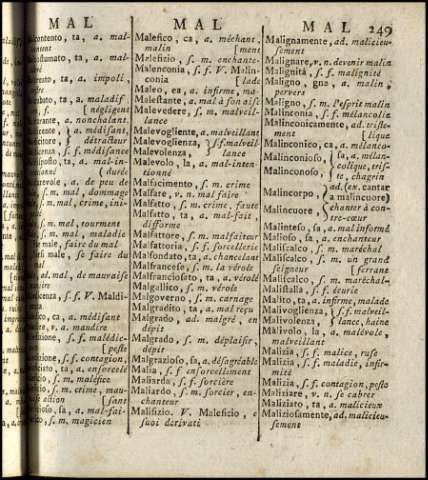 MAL
MAL
MAL 249
contento, ta, a. mal-
tento, ta, a. impoli
a. nonchalant.
a. médisant,
détracteur
s. f. médisance
a. mal-in-
a. de peu de
s. m. dommage
s. m. crime,
s. m. tourment
s. m. maladie
male, faire du mal
male, se faire du
ad. mal, de mauvaise
s. f. V. Maldi-
ca, a. médisant
v. a. maudire
s. f. malédic-
s. f. contagion,
ta, a. ensorcelé
s. m. maléfice
s. m. crime, mau-
sa, a. mal-fai-
s. m. magicien
Malefico, ca, a. méchant,
malin [ment
Malefizio, s. m. enchante-
Malenconia, s. f. V. Malin-
conia [lade
Maleo, ea, a. infirme, ma-
Malestante, a. mal à son aise
Malevedere, s. m. malveil-
lance
Malevogliente, a. malveillant
Malevoglienza, } s. f. malveil-
Malevolenza, } lance
Malevolo, la, a. mal-inten-
tionné
Malfacimento, s. m. crime
Malfare, v. n. mal faire
Malfatto, s. m. crime, faute
Malfatto, ta, a. mal-fait,
difforme
Malfattore, s. m. malfaiteur
Malfattoria, s. f. sorcellerie
Malfondato, ta, a. chancelant
Malfrancese, s. m. la vérole
Malfranciosato, ta, a. vérolé
Malgallico, s. m. vérole
Malgoverno, s. m. carnage
Malgradito, ta, a. mal reçu
Malgrado, ad. malgré, en
dépit
Malgrado, s. m. déplaisir,
dépit
Malgrazioso, sa, a. désagréable
Malìa, s. f. ensorcellement
Maliarda, s. f. sorcière
Maliardo, s. m. sorcier, en-
chanteur
Malifizio. V. Maleficio, e
suoi derivati
Malignamente, ad. malicieu-
sement
Malignare, v. n. devenir malin
Malignità, s. f. malignité
Maligno, gna, a. malin,
pervers
Maligno, s. m. l'esprit malin
Malinconia, s. f. mélancolie
Malinconicamente, ad. triste-
ment [lique
Malinconico, ca, a. mélanco-
Malinconioso, } sa, a. mélan-
colique, tris-
Malinconoso, } te, chagrin
Malincorpo, } ad. (ex. cantar
a malincuore)
Malincuore, } chanter à con-
tre-cœur
Malinteso, sa, a. mal informé
Malioso, sa, a. enchanteur
Maliscalco, s. m. maréchal
Maliscalco, s. m. un grand
seigneur [ferrant
Maliscalco, s. m. maréchal-
Malistalla, s. f. écurie
Malito, ta, a. infirme, malade
Malivoglienza, } s. f. malveil-
Malivolenza, } lance, haine
Malivolo, la, a. malévole,
malveillant
Malizia, s. f. malice, ruse
Malizia, s. f. maladie, infir-
mité
Malizia, s. f. contagion, peste
Maliziare, v. n. se cabrer
Maliziato, ta, a. malicieux
Maliziosamente, ad. malicieu-
sement